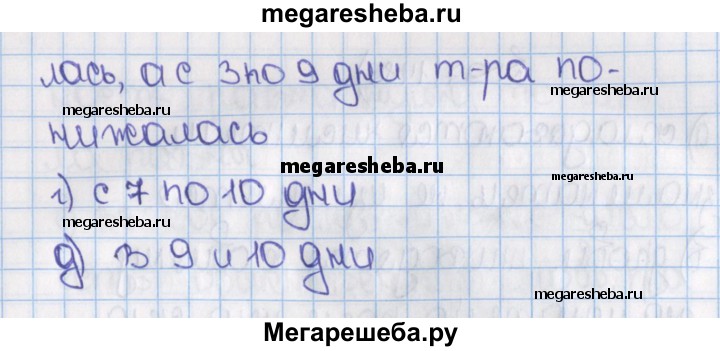 megaresheba.ru
лась, а с 3 по 9 дни т-ра по-
megaresheba.ru
megaresheba.ru
нижалась
megaresheba.ru
г) с 7 по 10 дни
megaresheba.ru
megaresheba.ru
д) в 9 и 10 дни
megaresheba.ru
Мегарешеба.ру